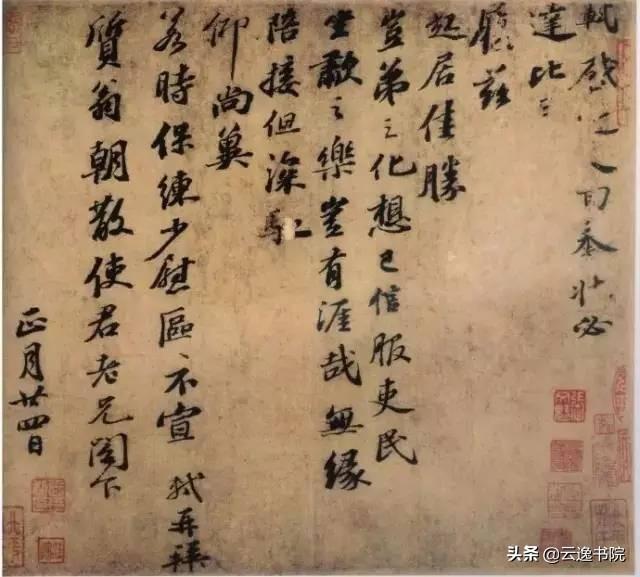 軾啓近人回奉狀必
達比日
履茲
起居佳勝
豈弟之化想已信服吏民
坐歗之樂豈有涯哉無緣
陪接但深馳
仰尚冀
若時保練少慰區〻不宣 軾再拜
質翁朝散使君老兄閣下
正月廿四日
头条 @云逸书院